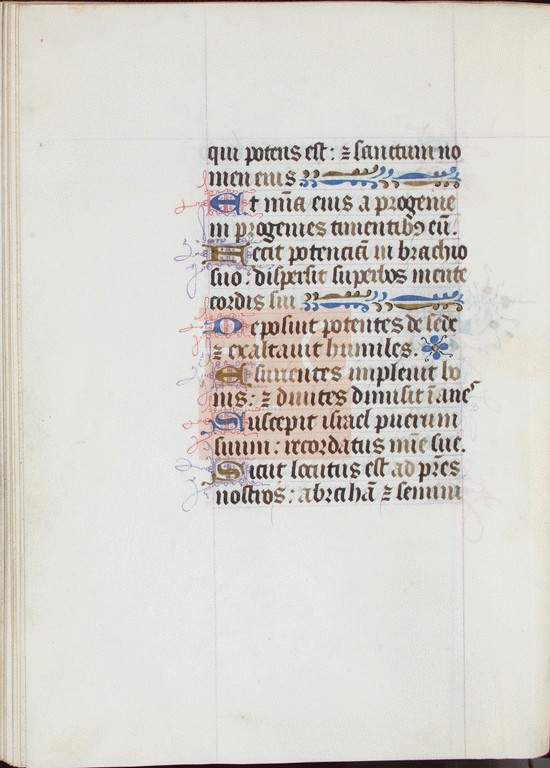 qui potens est: ⁊ sanctum no
men eius
Et mīa eius a progenie
in progenies timentibꝯ eū.
Fecit potenciā in brachio
suo: dispersit superbos mente
cordis sui
Deposuit potentes de sede
exaltauit humiles.
Esurientes impleuit bo
nis: ⁊ diuites dimisit īanes
Suscepit israel puerum
suum: recordatus mīe sue.
Sicut locutus est ad pr̄es
nostros: abrahā ⁊ semini